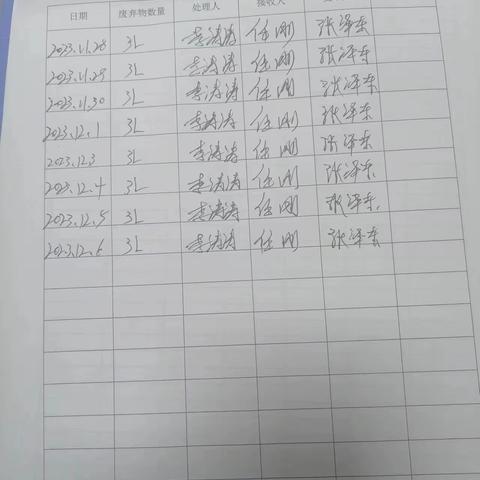 日期 废弃物数量 处理人 接收人
2023.11.28 3L 李涛涛 任刚 张泽东
2023.11.29 3L 李涛涛 任刚 张泽东
2023.11.30 3L 李涛涛 任刚 张泽东
2023.12.1 3L 李涛涛 任刚 张泽东
2023.12.3 3L 李涛涛 任刚 张泽东
2023.12.4 3L 李涛涛 任刚 张泽东
2023.12.5 3L 李涛涛 任刚 张泽东
2023.12.6 3L 李涛涛 任刚 张泽东